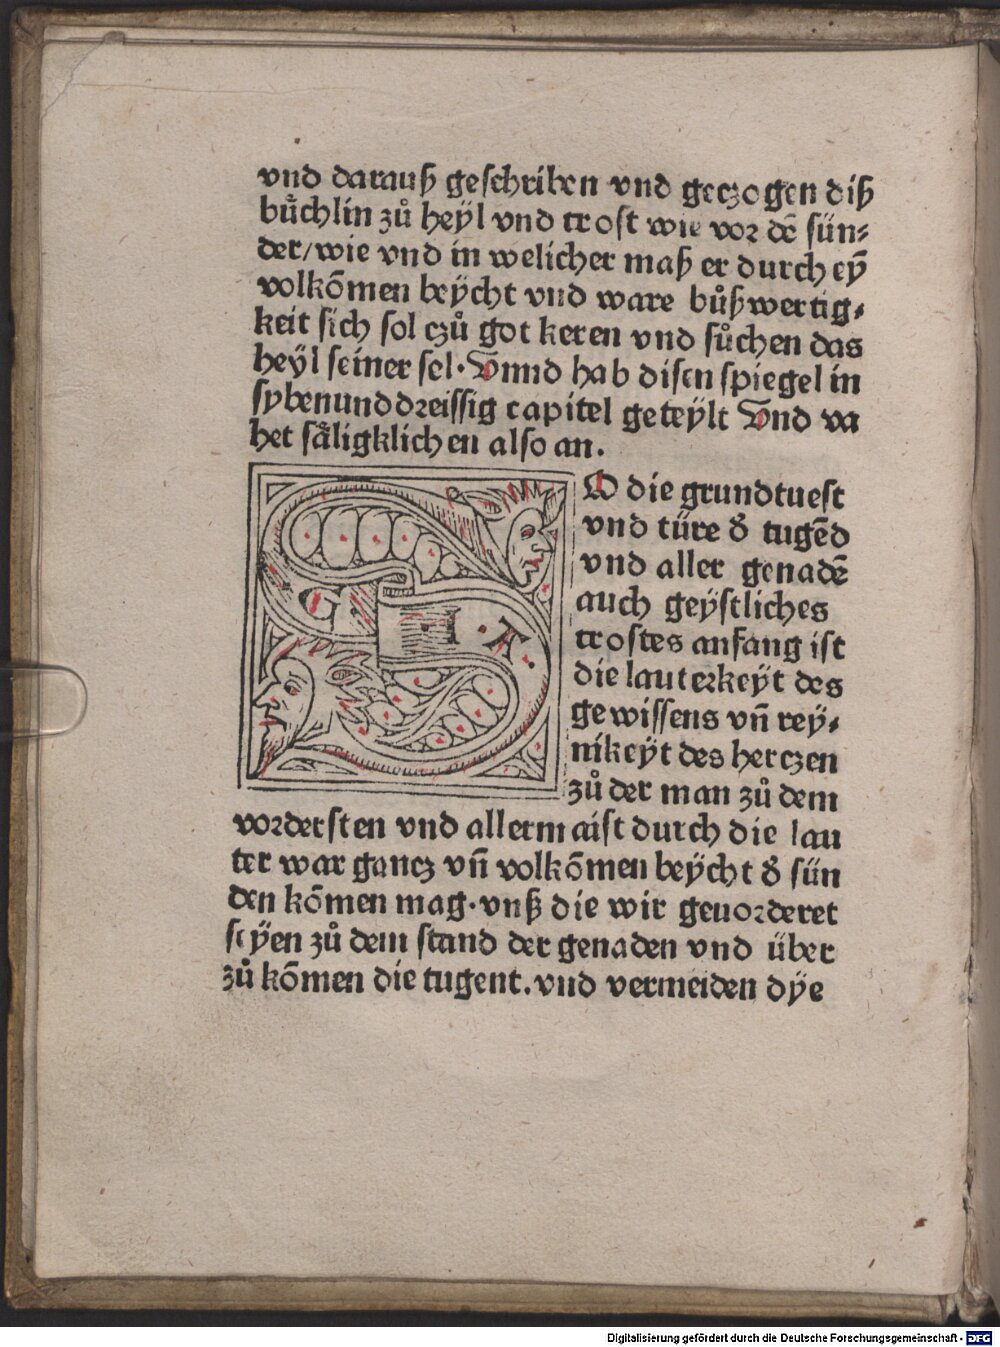 vnd darauß geschriben vnd geczogen diß
bůchlin zů heÿl vnd trost wie vor dē sün⸗
der/wie vnd in welicher maß er durch eȳ
volkōmen beÿcht vnd ware bůßwertig⸗
keit sich sol czů got keren vnd sůchen das
heÿl seiner sel· Vnnd hab disen spiegel in
sybenunddreissig capitel geteÿlt Vnd va
het såligklichen also an.
G · I · A ·
SO die grundtuest
vnd türe d̕ tugēd
vnd aller genadē
auch geÿstliches
trostes anfang ist
die lauterkeÿt des
gewissens vn̄ reÿ⸗
nikeÿt des herczen
zů der man zů dem
vordersten vnd allermaist durch die lau
ter war gancz vn̄ volkōmen beÿcht d̕ sün
den kōmen mag·vnß die wir geuorderet
seÿen zů dem stand der genaden vnd über
zů kōmen die tugent.vnd vermeiden dÿe
Digitalisierung gefördert durch die Deutsche Forschungsgemeinschaft - DFG